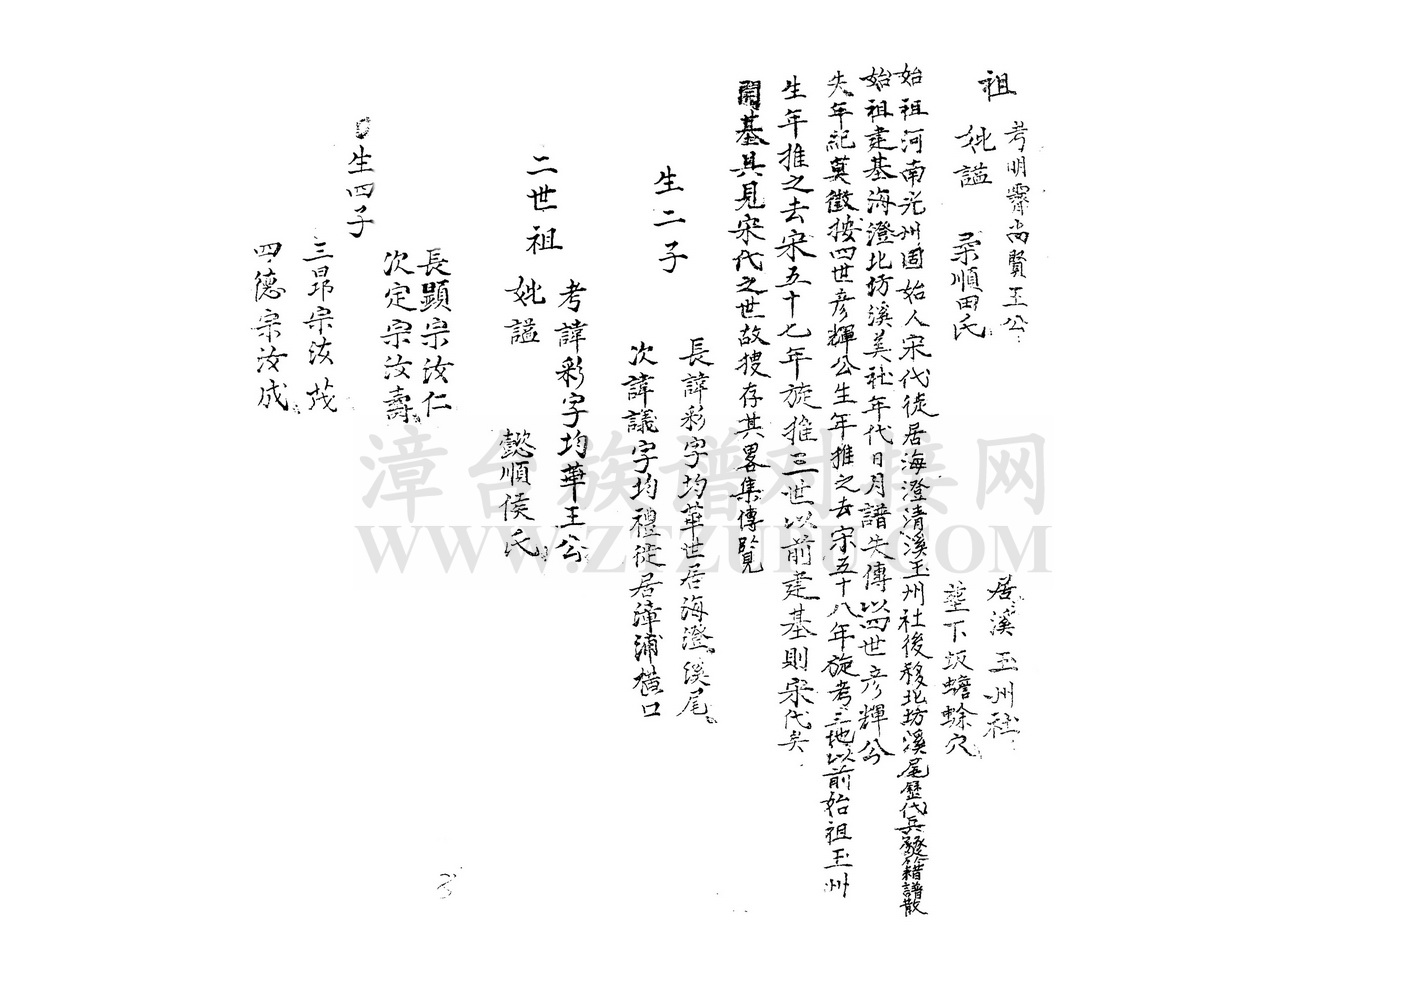 祖
考明霽尚賢王公
妣諡 柔順田氏
居溪玉州社
塟下坂蟾蜍穴
始祖河南光州固始人宋代徒居海澄清溪玉州社後移北坊溪尾歷代兵燹籍譜散
始祖建基海澄北坊溪美社年代日月譜失傳以四世彥輝公
失年紀莫徵按四世彥輝公生年推之去宋五十八年旋考三地以前始祖玉州
生年推之去宋五十七年旋推三世以前建基則宋代矣
開基具見宋代之世故搜存其畧集傳覽
生二子
長諱彩字均華世居海澄溪尾
次諱議字均禮徙居漳浦橫口
二世祖
考諱彩字均華王公
妣諡 懿順侯氏
生四子
長顯宗汝仁
次定宗汝壽
三昂宗汝茂
四德宗汝成
漳台族谱对接网
WWW.ZTZUPU.COM